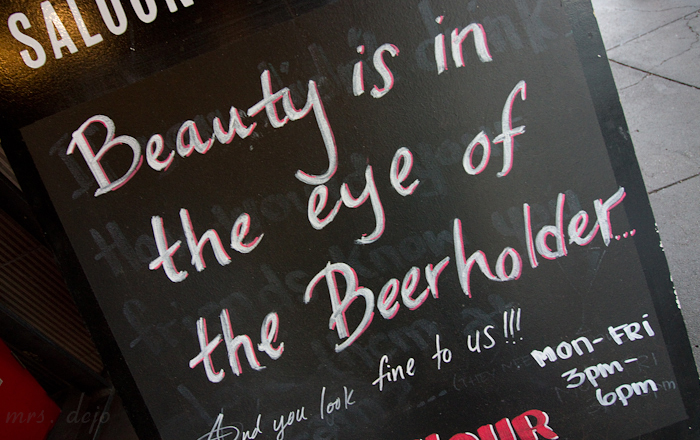 SALOON
Beauty is in
the eye of
the Beerholder...
And you look fine to us!!!
MON-FRI
3pm-
6pm
HOUR
mrs. dejo